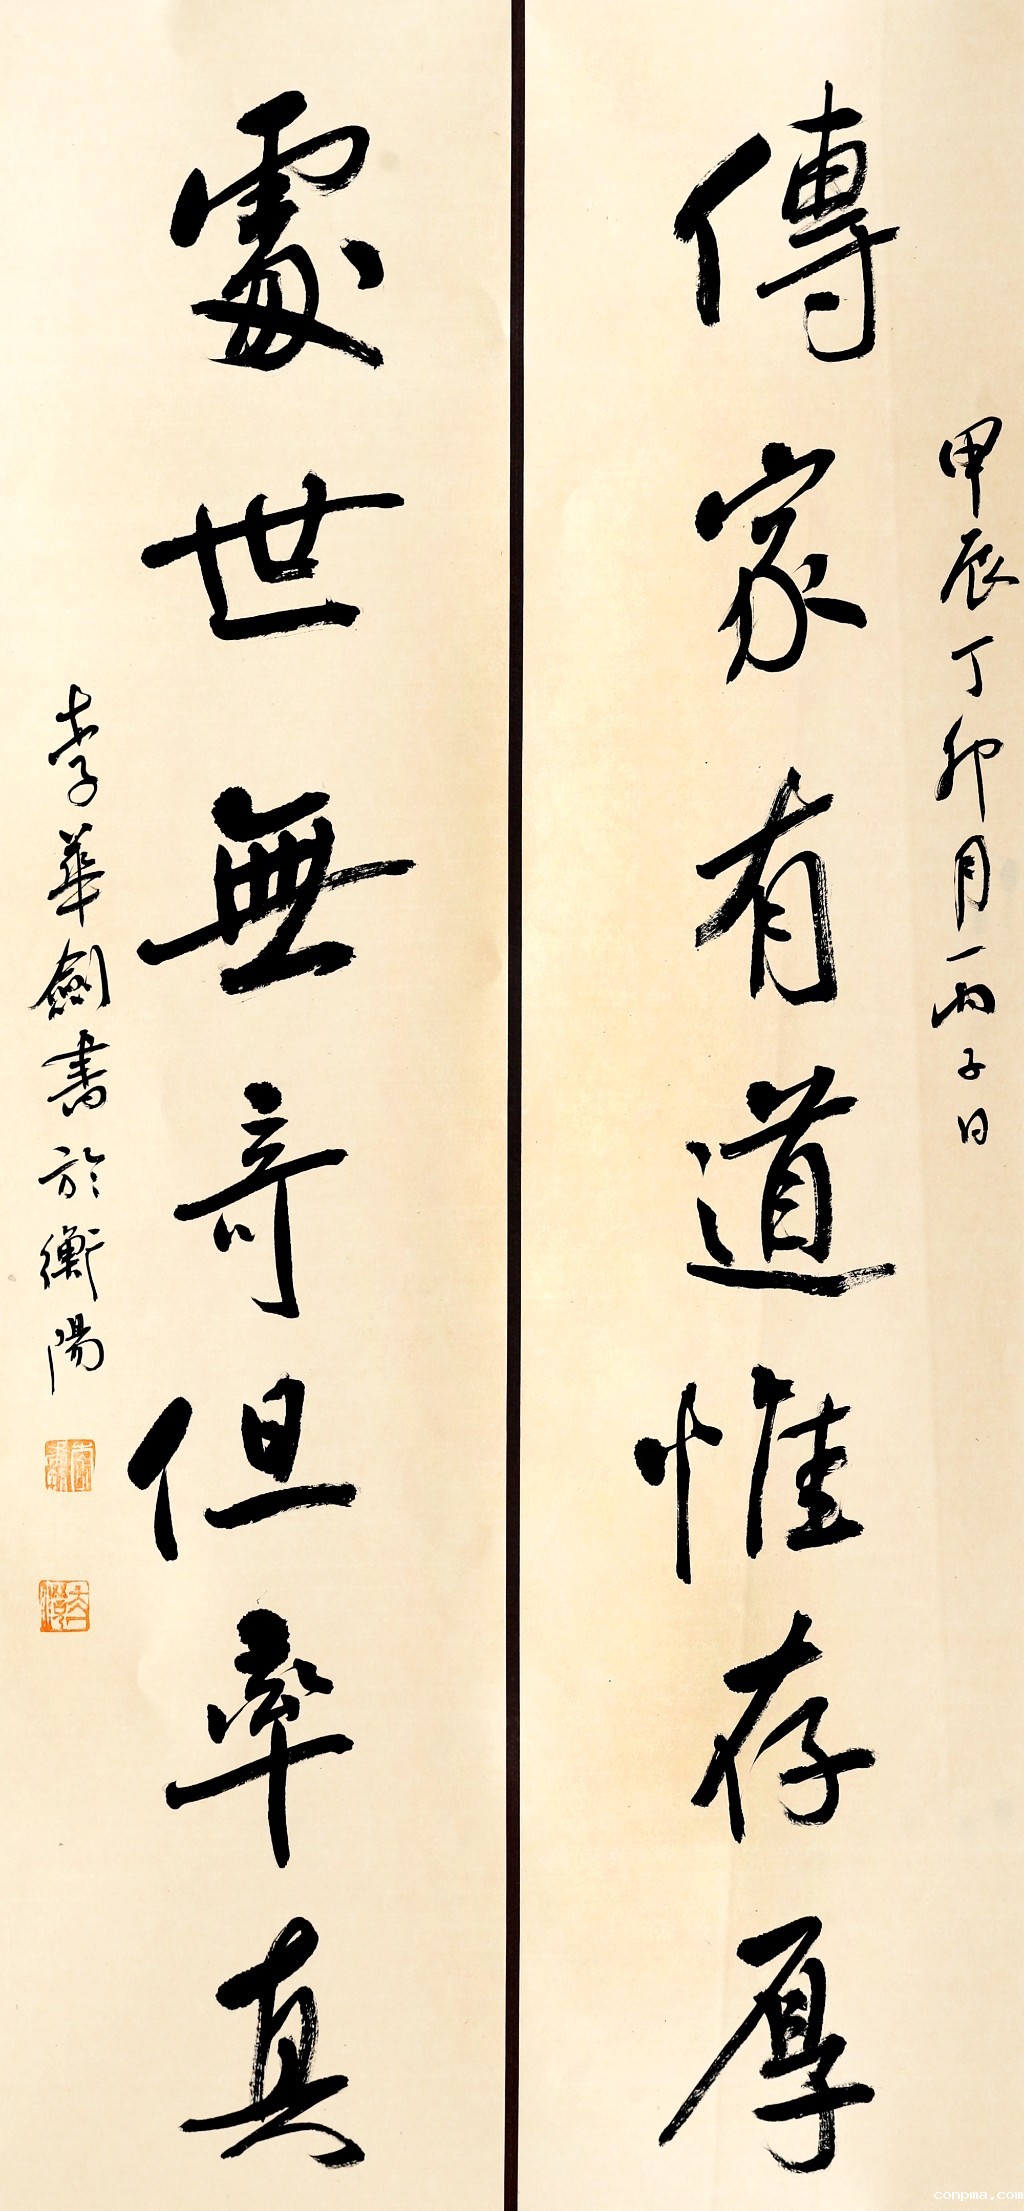 甲辰丁卯月丙子日
傳家有道惟存厚
處世無奇但率真
李華劍書於衡陽
conpma.com